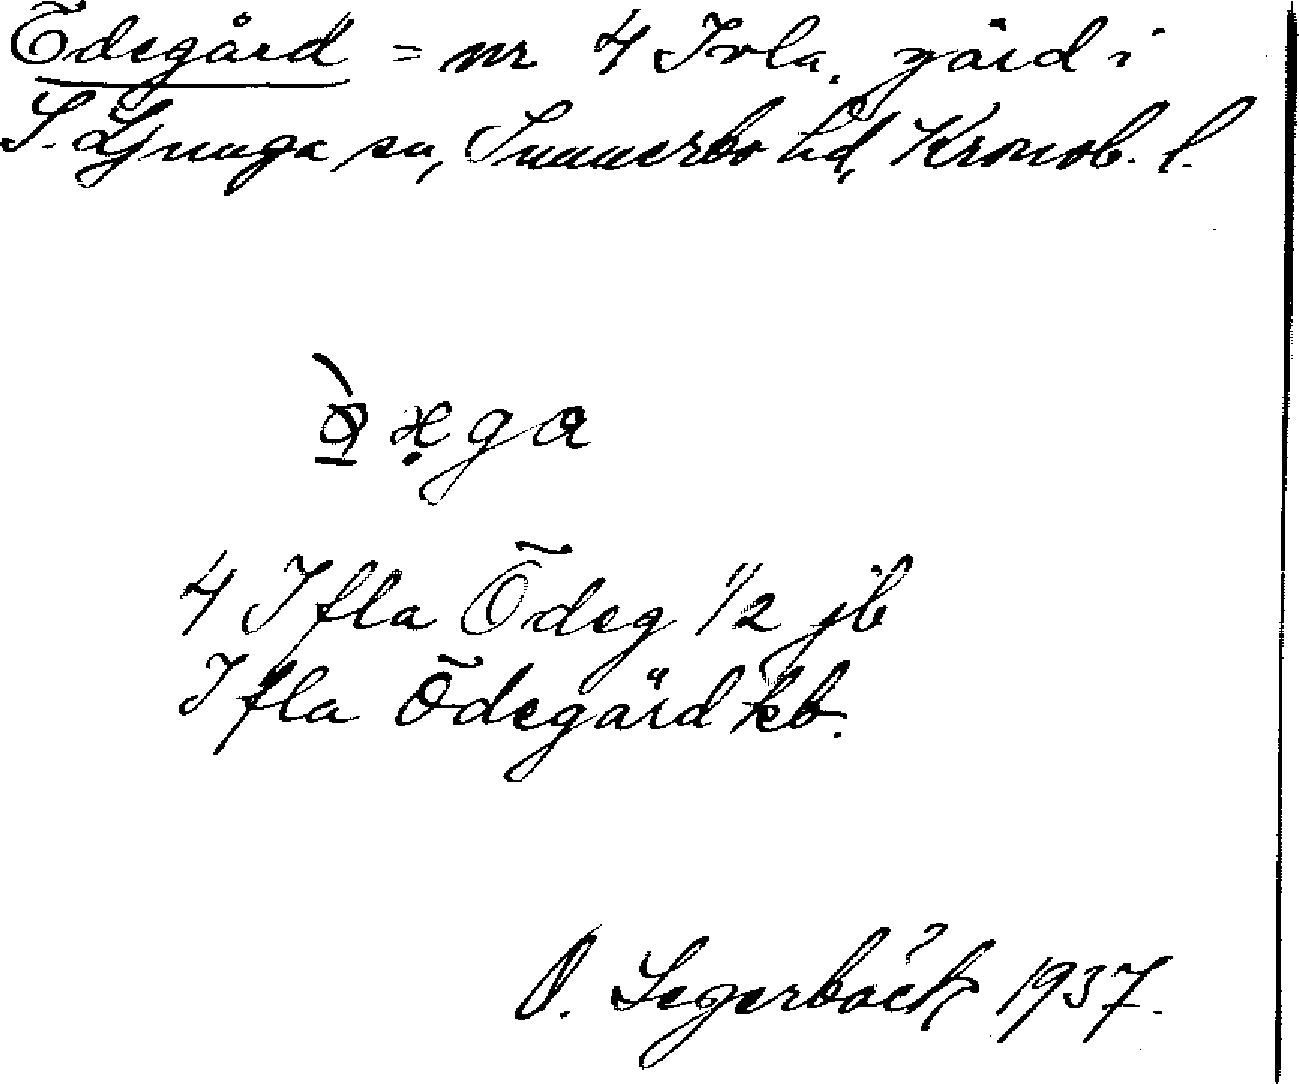 Ödegård = nr 4 Ivla, gård i
S. Ljunga sn, Sunnerbo hd, Kronob. l.
4 Ifla Ödeg 1/2 jb
Ifla Ödegård kb.
Segerbäck 1937.